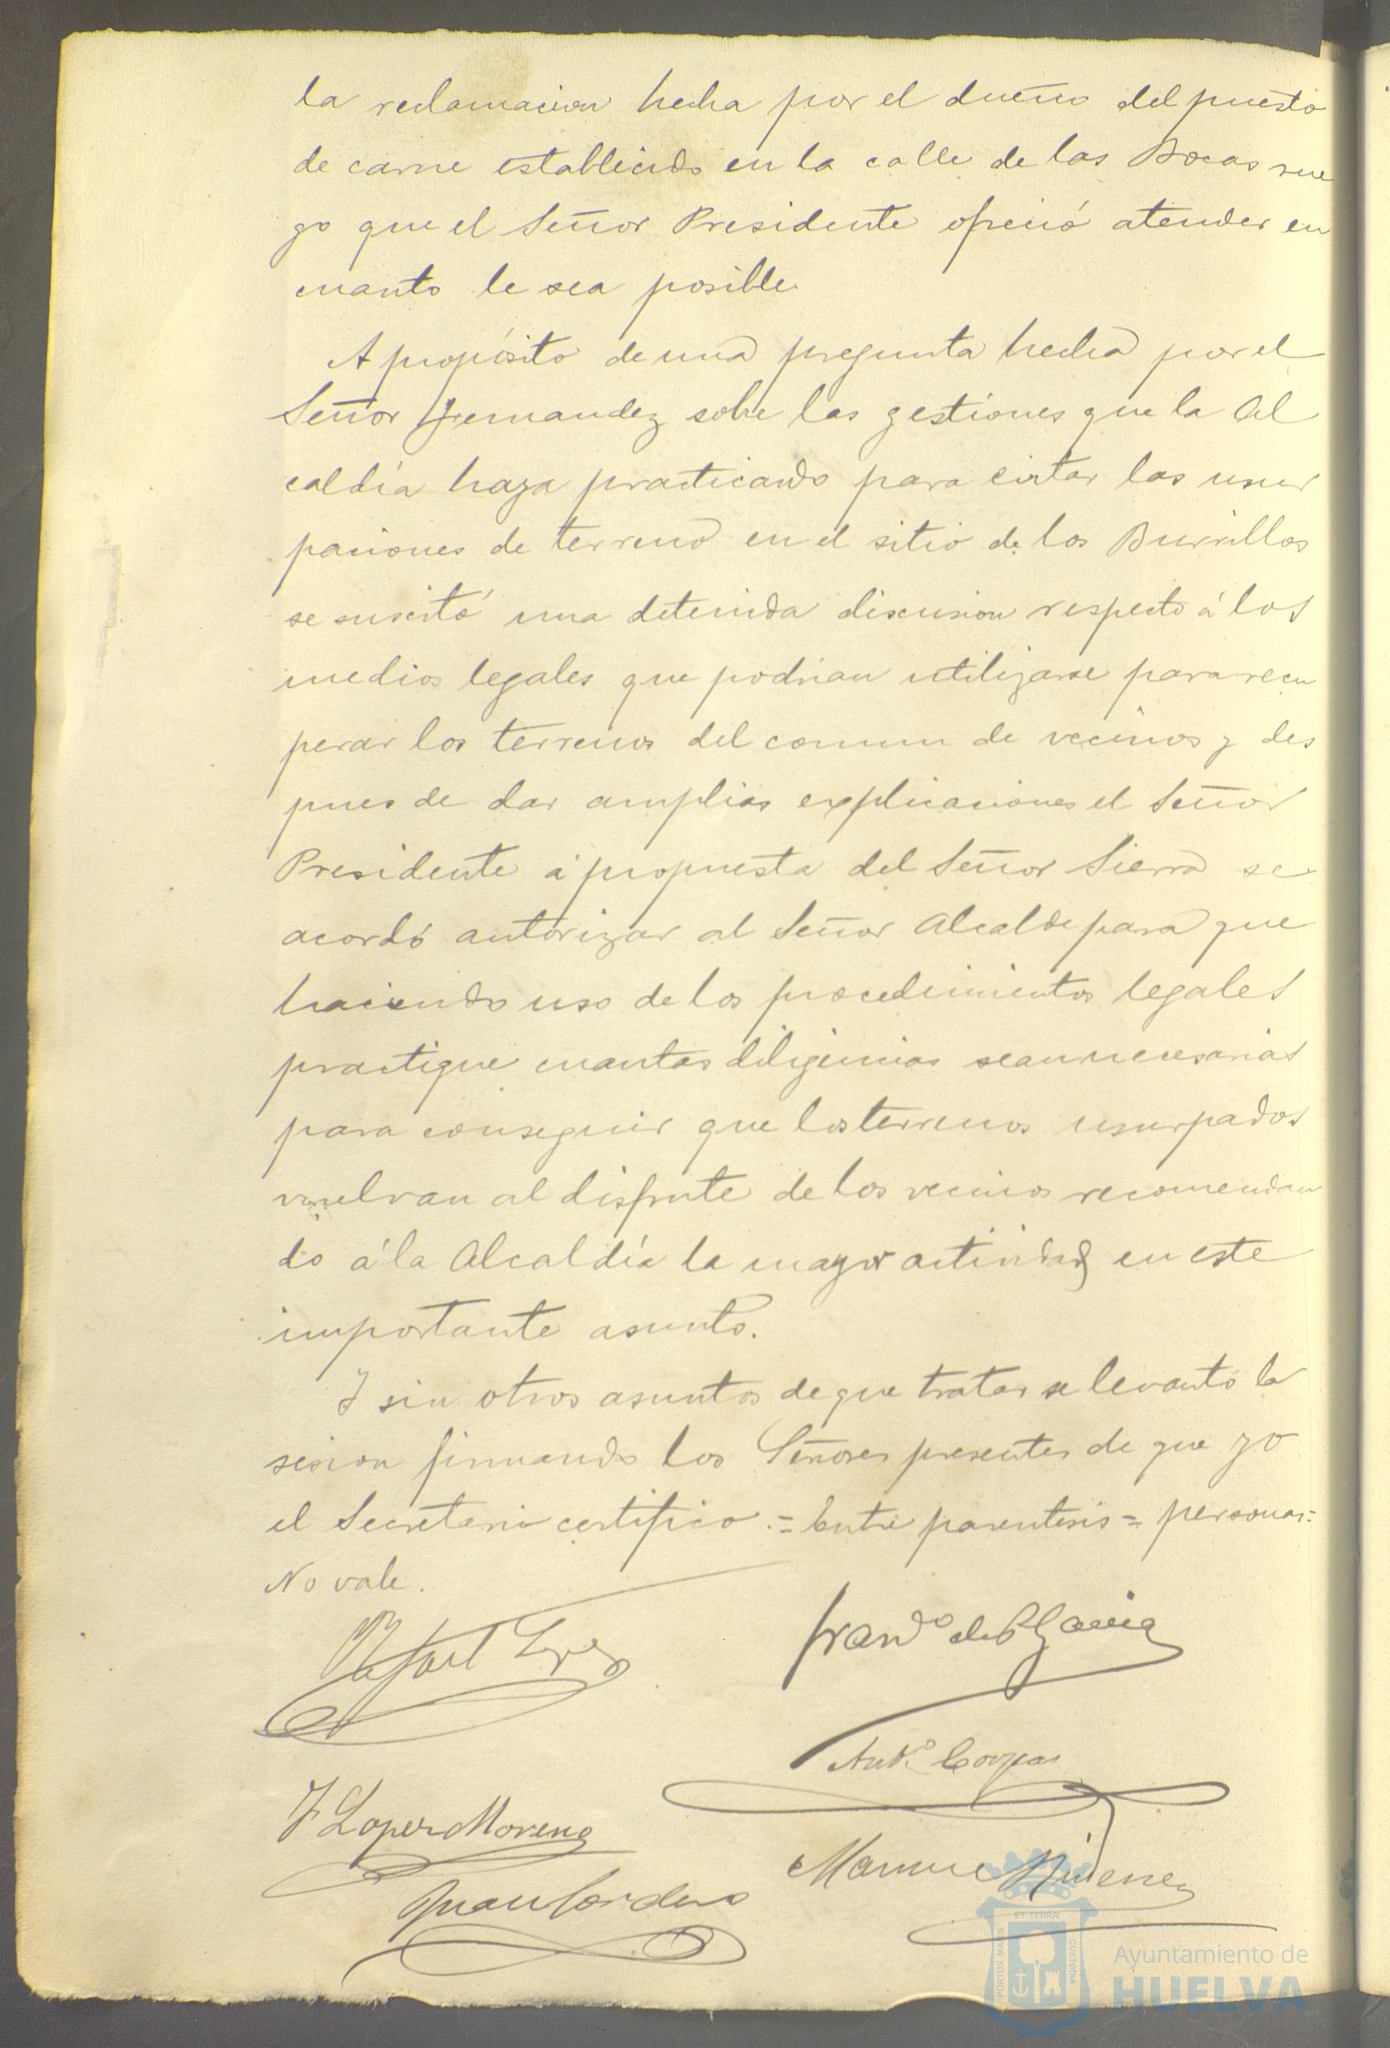 la reclamacion hecha por el dueño del puesto
de carne establecido en la calle de las Bocas rue
go que el Señor Presidente ofreció atender en
cuanto le sea posible.
A propósito de una pregunta hecha por el
Señor Hernandez sobre las gestiones que la Al
caldía haya practicando para evitar las usur
paciones de terreno en el sitio de los Burrillos
se suscitó una detenida discusion respecto á los
medios legales que podrian utilizarse para recu
perar los terrenos del comun de vecinos y des
pues de dar amplias explicaciones el Señor
Presidente á propuesta del Señor Sierra se
acordó autorizar al Señor Alcalde para que
haciendo uso de los procedimientos legales
practique cuantas diligencias sean necesarias
para conseguir que los terrenos usurpados
vuelvan al disfrute de los vecinos recomendan
do á la Alcaldía la mayor actividad en este
importante asunto.
Y sin otros asuntos de que tratar se levantó la
sesion firmando los Señores presentes de que yo
el Secretario certifico.= Entre parentesis = personas=
No vale.
Rafael Lopez
Franco de P. Garcia
Anto. Corpas
J Lopez Moreno
Manuel Jimenez
Juan Cordero
ET TERRÆ
PORTUS MARIS
CUSTODIA
Ayuntamiento de
HUELVA